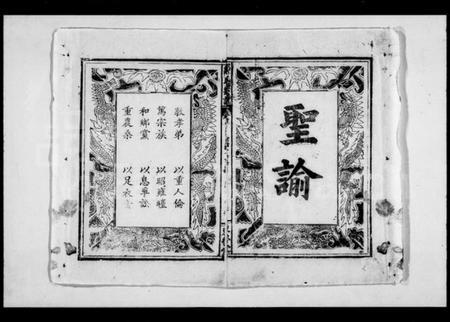 聖諭
敦孝弟 以重人倫
篤宗族 以昭雍睦
和鄉黨 以息爭訟
重農桑 以足衣